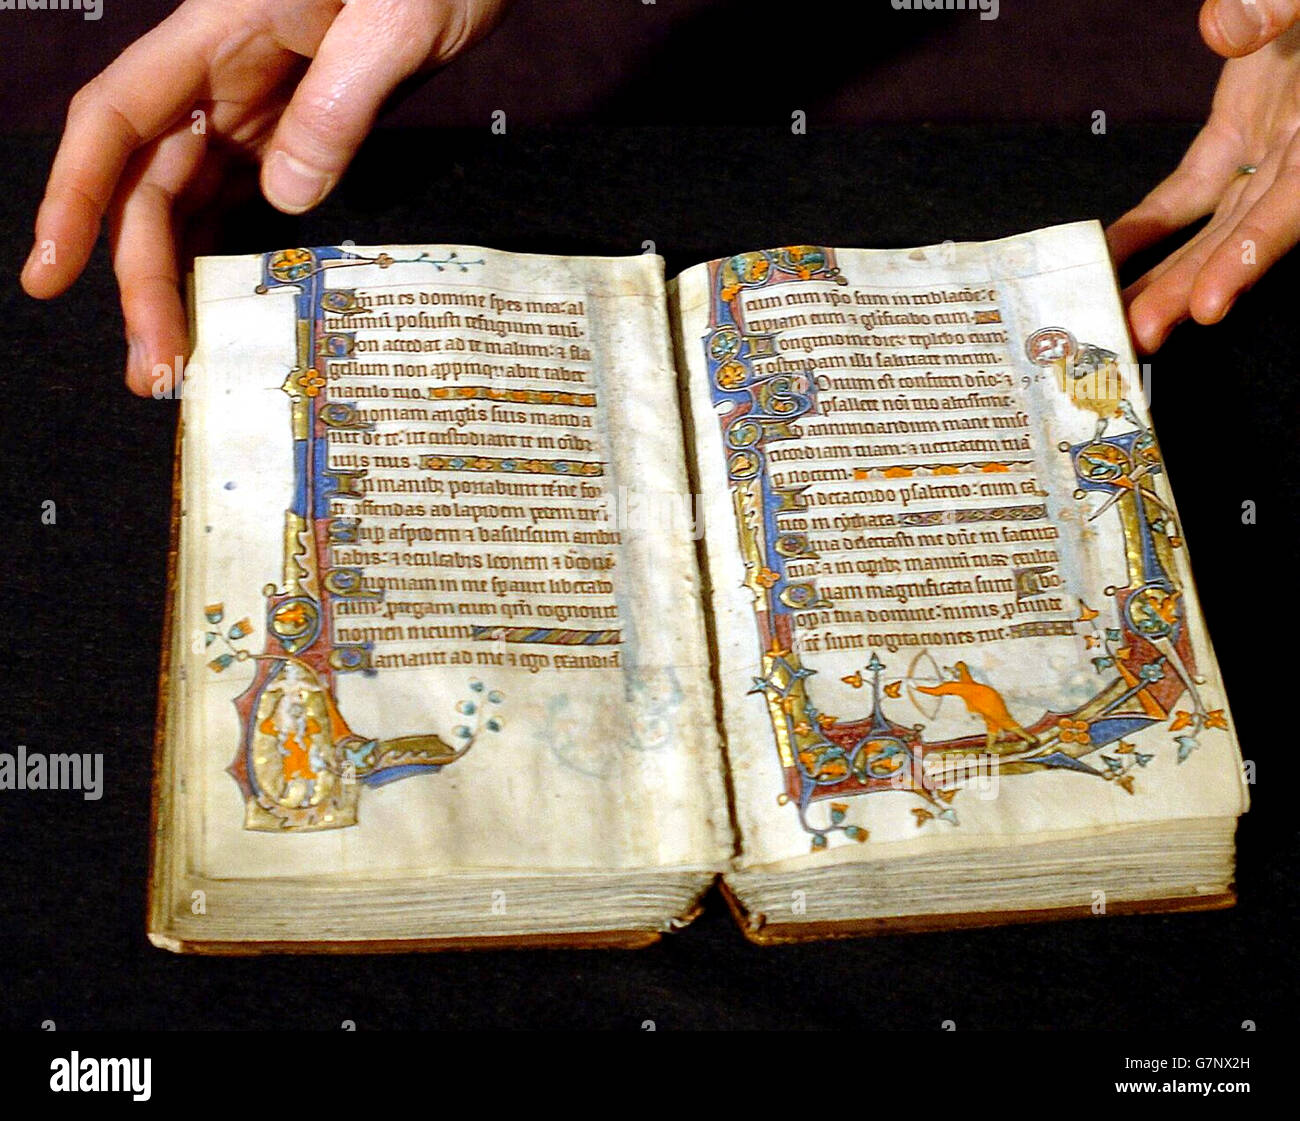 Qm tu es domine spes mea: al
tissimu posuisti refugium tuu.
Non accedat ad te malum: & fla
gellum non appinquabit taber
naculo tuo.
Quoniam anglis suis manda
uit de te: ut custodiant te in oibz
uiis tuis.
In manibz portabunt te: ne for
te offendas ad lapidem pedem tuu.
Sup aspidem & basiliscum ambu
labis: & conculcabis leonem & draconem
Quoniam in me sperauit liberabo
eum: protegam eum qm cognouit
nomen meum
Clamauit ad me & ego exaudia
eum cum ipo sum in tribulacoe: e
ripiam eum & glificabo eum.
Longitudine dierz replebo eum:
& ostendam illi salutare meum.
Bonum est confiteri dno: &
psallere noi tuo altissime.
Ad annunciandum mane mise
ricordiam tuam: & ueritatem tua
p noctem.
In decacordo psalterio: cum ca
tico in cythara.
Quia delectasti me dne in factura
tua: & in opibz manuu tuarz exulta
Quam magnificata sunt
opa tua domine: nimis pfunde
fce sunt cogitaciones tue.
alamy stock photo
G7NX2H
www.alamy.com